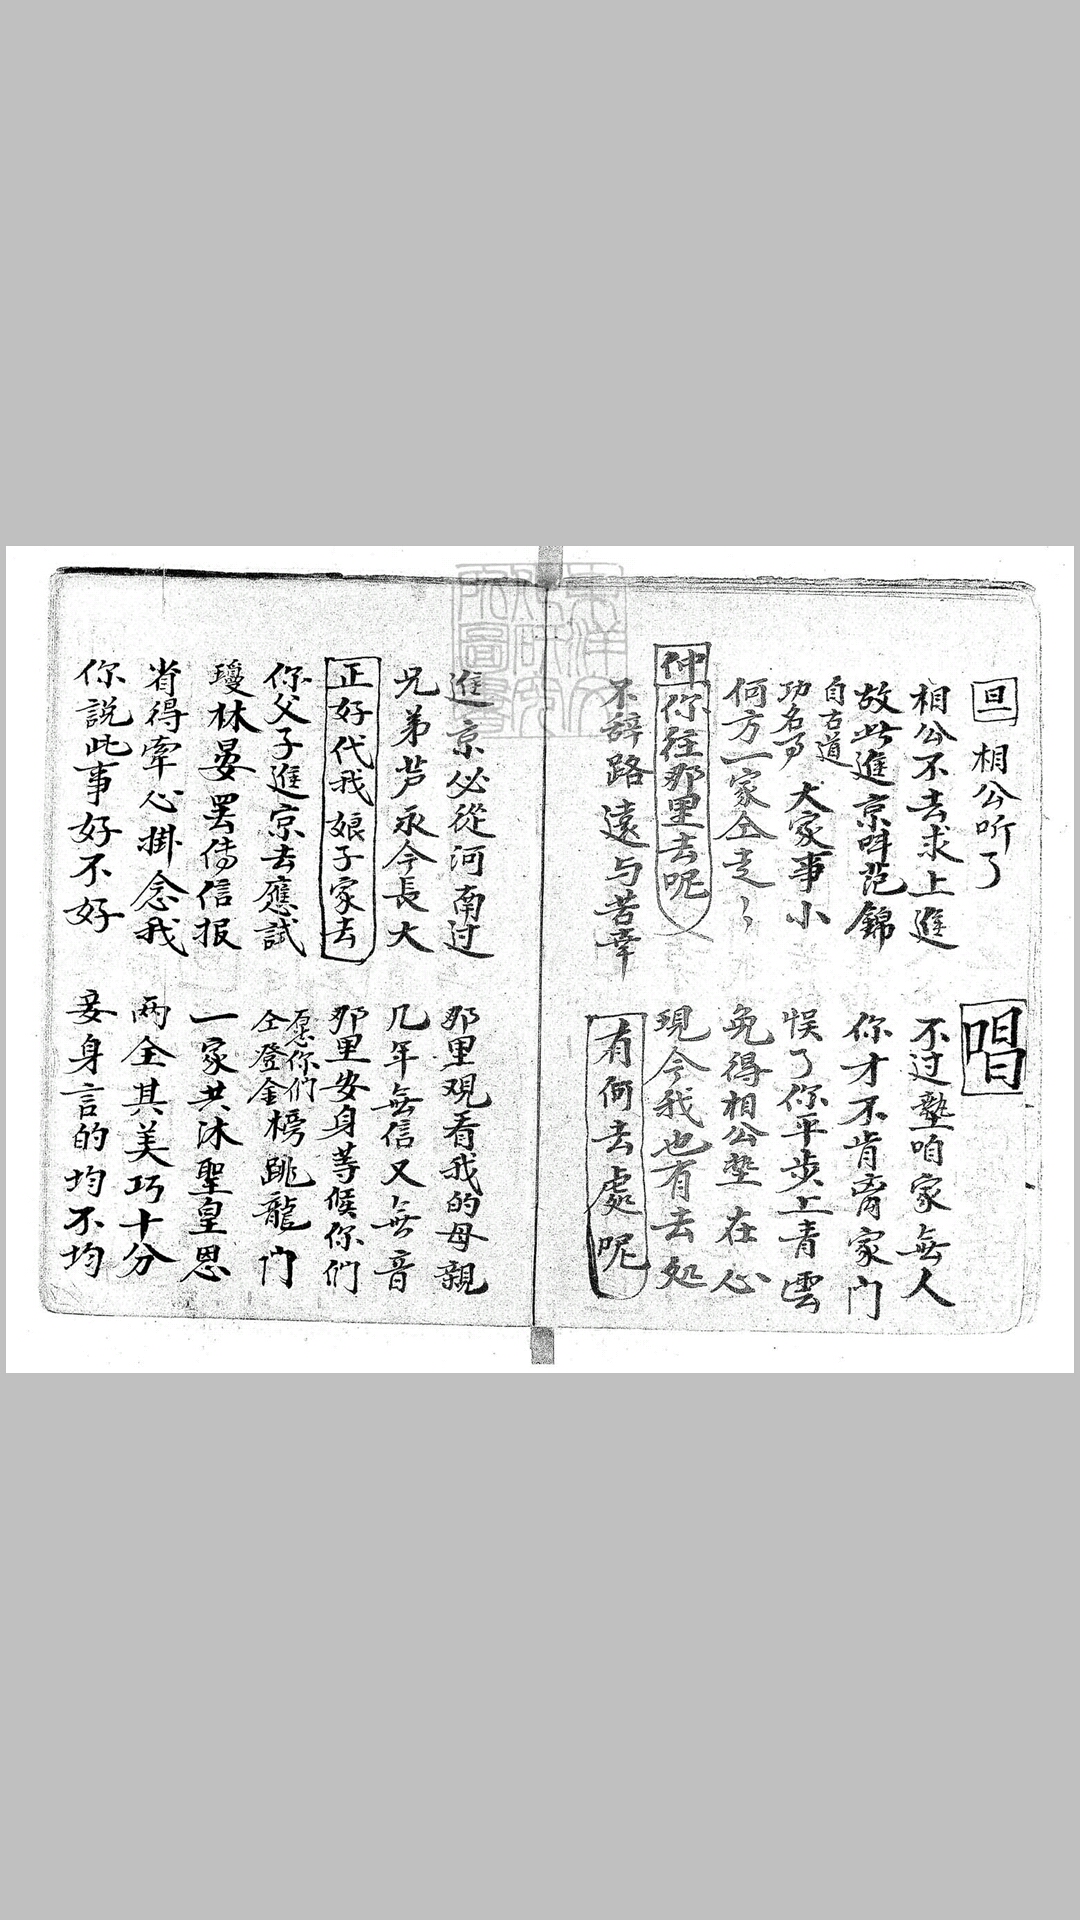 旦 相公听了 唱
相公不去求上進 不过墊咱家無人
故此進京呌范錦 你才不肯离家门
自古道功名事大家事小 悮了你平步上青雲
何方一家仝走了 免得相公墊在心
仲 你往那里去呢 現今我也有去処
不辞路遠与苦幸 有何去處呢
進京必從河南过 那里观看我的母親
兄弟芦永今長大 几年無信又無音
正好代我娘子家去 那里安身等候你们
你父子進京去應試 愿你们仝登金榜跳龍门
瓊林晏罢傳信报 一家共沐聖皇恩
省得牽心掛念我 两全其美巧十分
你説此事好不好 妾身言的均不均